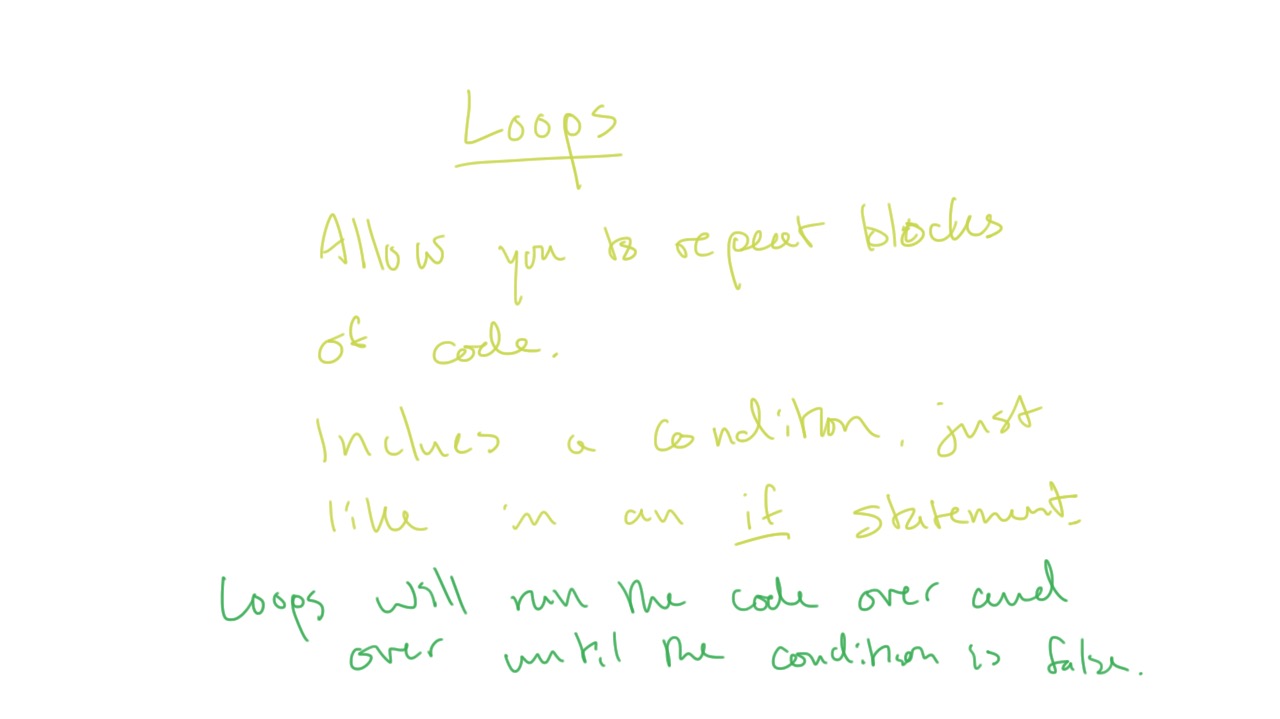 Loops
Allow you to repeat blocks
of code.
Inclues a condition, just
like in an if statement.
Loops will run the code over and
over until the condition is false.